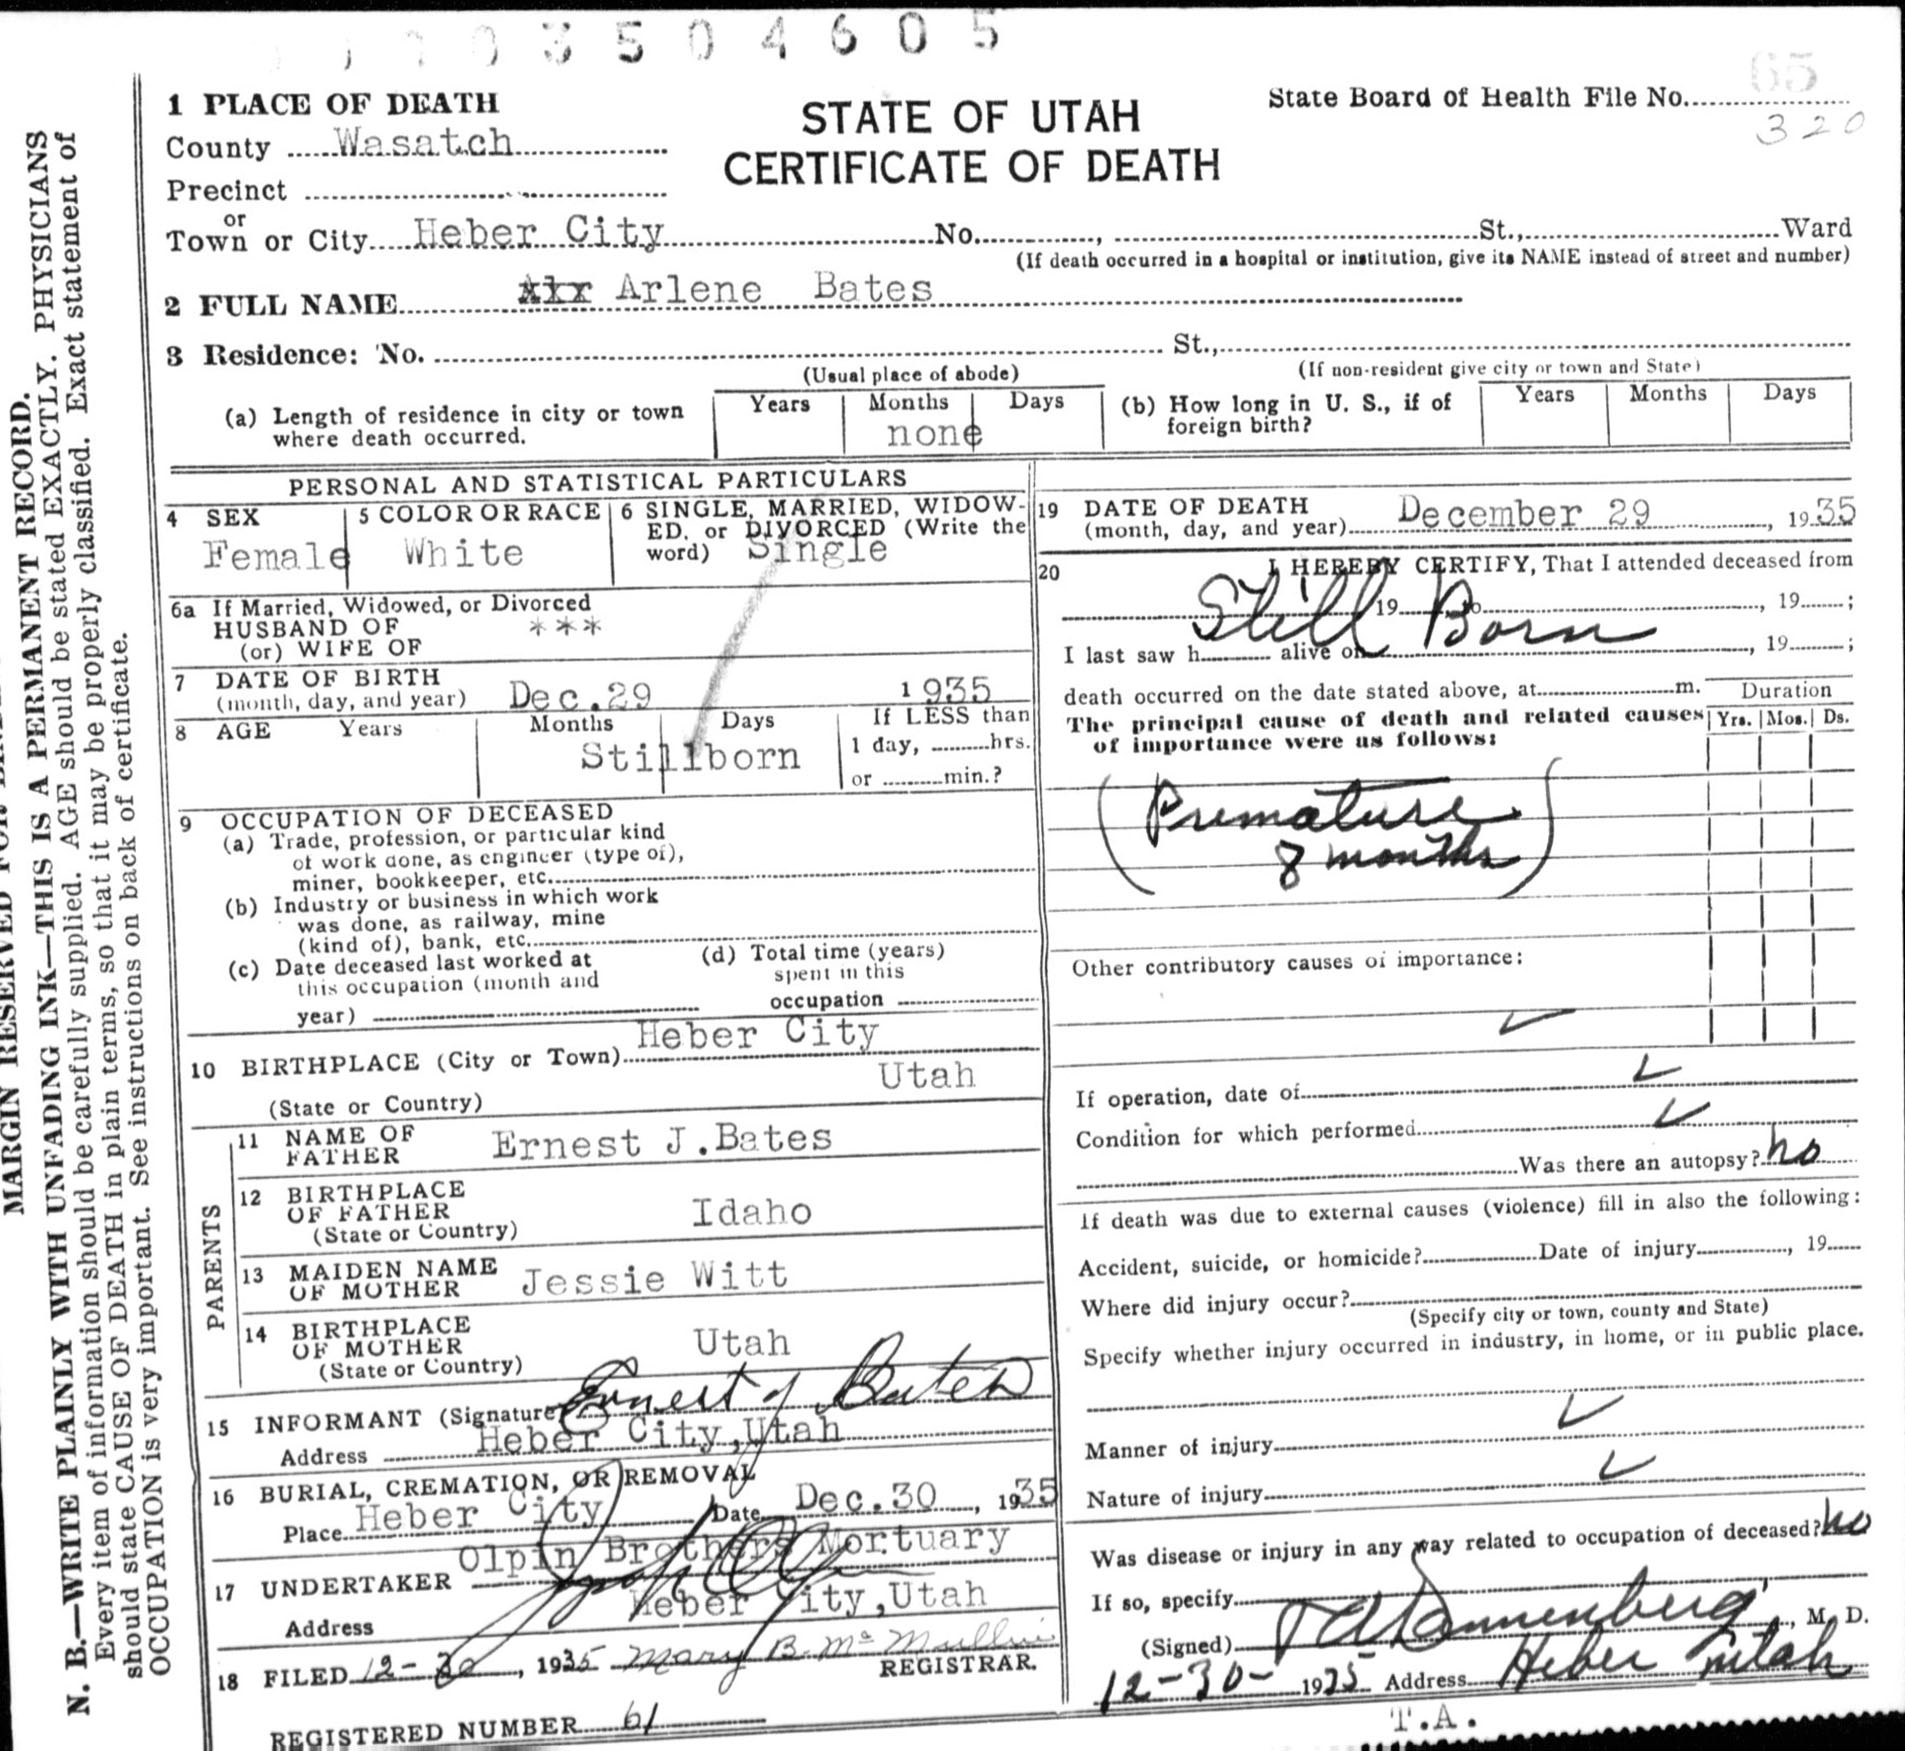 3504605
65
1 PLACE OF DEATH
STATE OF UTAH
CERTIFICATE OF DEATH
State Board of Health File No.
320
County Wasatch
Precinct
or
Town or City Heber City No. , St., Ward
(If death occurred in a hospital or institution, give its NAME instead of street and number)
2 FULL NAME Arlene Bates
3 Residence: No. St.,
(Usual place of abode) (If non-resident give city or town and State)
(a) Length of residence in city or town
where death occurred.
Years Months Days
none
(b) How long in U. S., if of
foreign birth?
Years Months Days
PERSONAL AND STATISTICAL PARTICULARS
4 SEX
Female
5 COLOR OR RACE
White
6 SINGLE, MARRIED, WIDOW-
ED, or DIVORCED (Write the
word) Single
6a If Married, Widowed, or Divorced
HUSBAND OF ***
(or) WIFE OF
7 DATE OF BIRTH
(month, day, and year) Dec.29 1935
8 AGE Years Months Days If LESS than
1 day, hrs.
or min.?
Stillborn
9 OCCUPATION OF DECEASED
(a) Trade, profession, or particular kind
of work done, as engineer (type of),
miner, bookkeeper, etc.
(b) Industry or business in which work
was done, as railway, mine
(kind of), bank, etc.
(c) Date deceased last worked at
this occupation (month and
year)
(d) Total time (years)
spent in this
occupation
10 BIRTHPLACE (City or Town) Heber City
Utah
(State or Country)
PARENTS
11 NAME OF
FATHER Ernest J.Bates
12 BIRTHPLACE
OF FATHER Idaho
(State or Country)
13 MAIDEN NAME
OF MOTHER Jessie Witt
14 BIRTHPLACE
OF MOTHER Utah
(State or Country)
15 INFORMANT (Signature) Ernest J Bates
Address Heber City,Utah
16 BURIAL, CREMATION, OR REMOVAL
Place Heber City Date Dec.30, 1935
Olpin Brothers Mortuary
17 UNDERTAKER
Address Heber City,Utah
18 FILED 12-30, 1935 Mary B. McMullin
REGISTRAR.
REGISTERED NUMBER 61
19 DATE OF DEATH
(month, day, and year) December 29, 1935
20 I HEREBY CERTIFY, That I attended deceased from
19 to , 19 ;
Still Born
I last saw h alive on , 19 ;
death occurred on the date stated above, at m.
Duration
The principal cause of death and related causes
of importance were as follows:
Yrs. Mos. Ds.
(Premature
8 months)
Other contributory causes of importance:
If operation, date of
Condition for which performed
Was there an autopsy? no
If death was due to external causes (violence) fill in also the following:
Accident, suicide, or homicide? Date of injury , 19
Where did injury occur?
(Specify city or town, county and State)
Specify whether injury occurred in industry, in home, or in public place.
Manner of injury
Nature of injury
Was disease or injury in any way related to occupation of deceased? no
If so, specify
(Signed) Dannenberg, M. D.
12-30- 1935 Address Heber Utah
T.A.
MARGIN RESERVED FOR
N. B.—WRITE PLAINLY WITH UNFADING INK—THIS IS A PERMANENT RECORD.
Every item of information should be carefully supplied. AGE should be stated EXACTLY. PHYSICIANS
should state CAUSE OF DEATH in plain terms, so that it may be properly classified. Exact statement of
OCCUPATION is very important. See instructions on back of certificate.